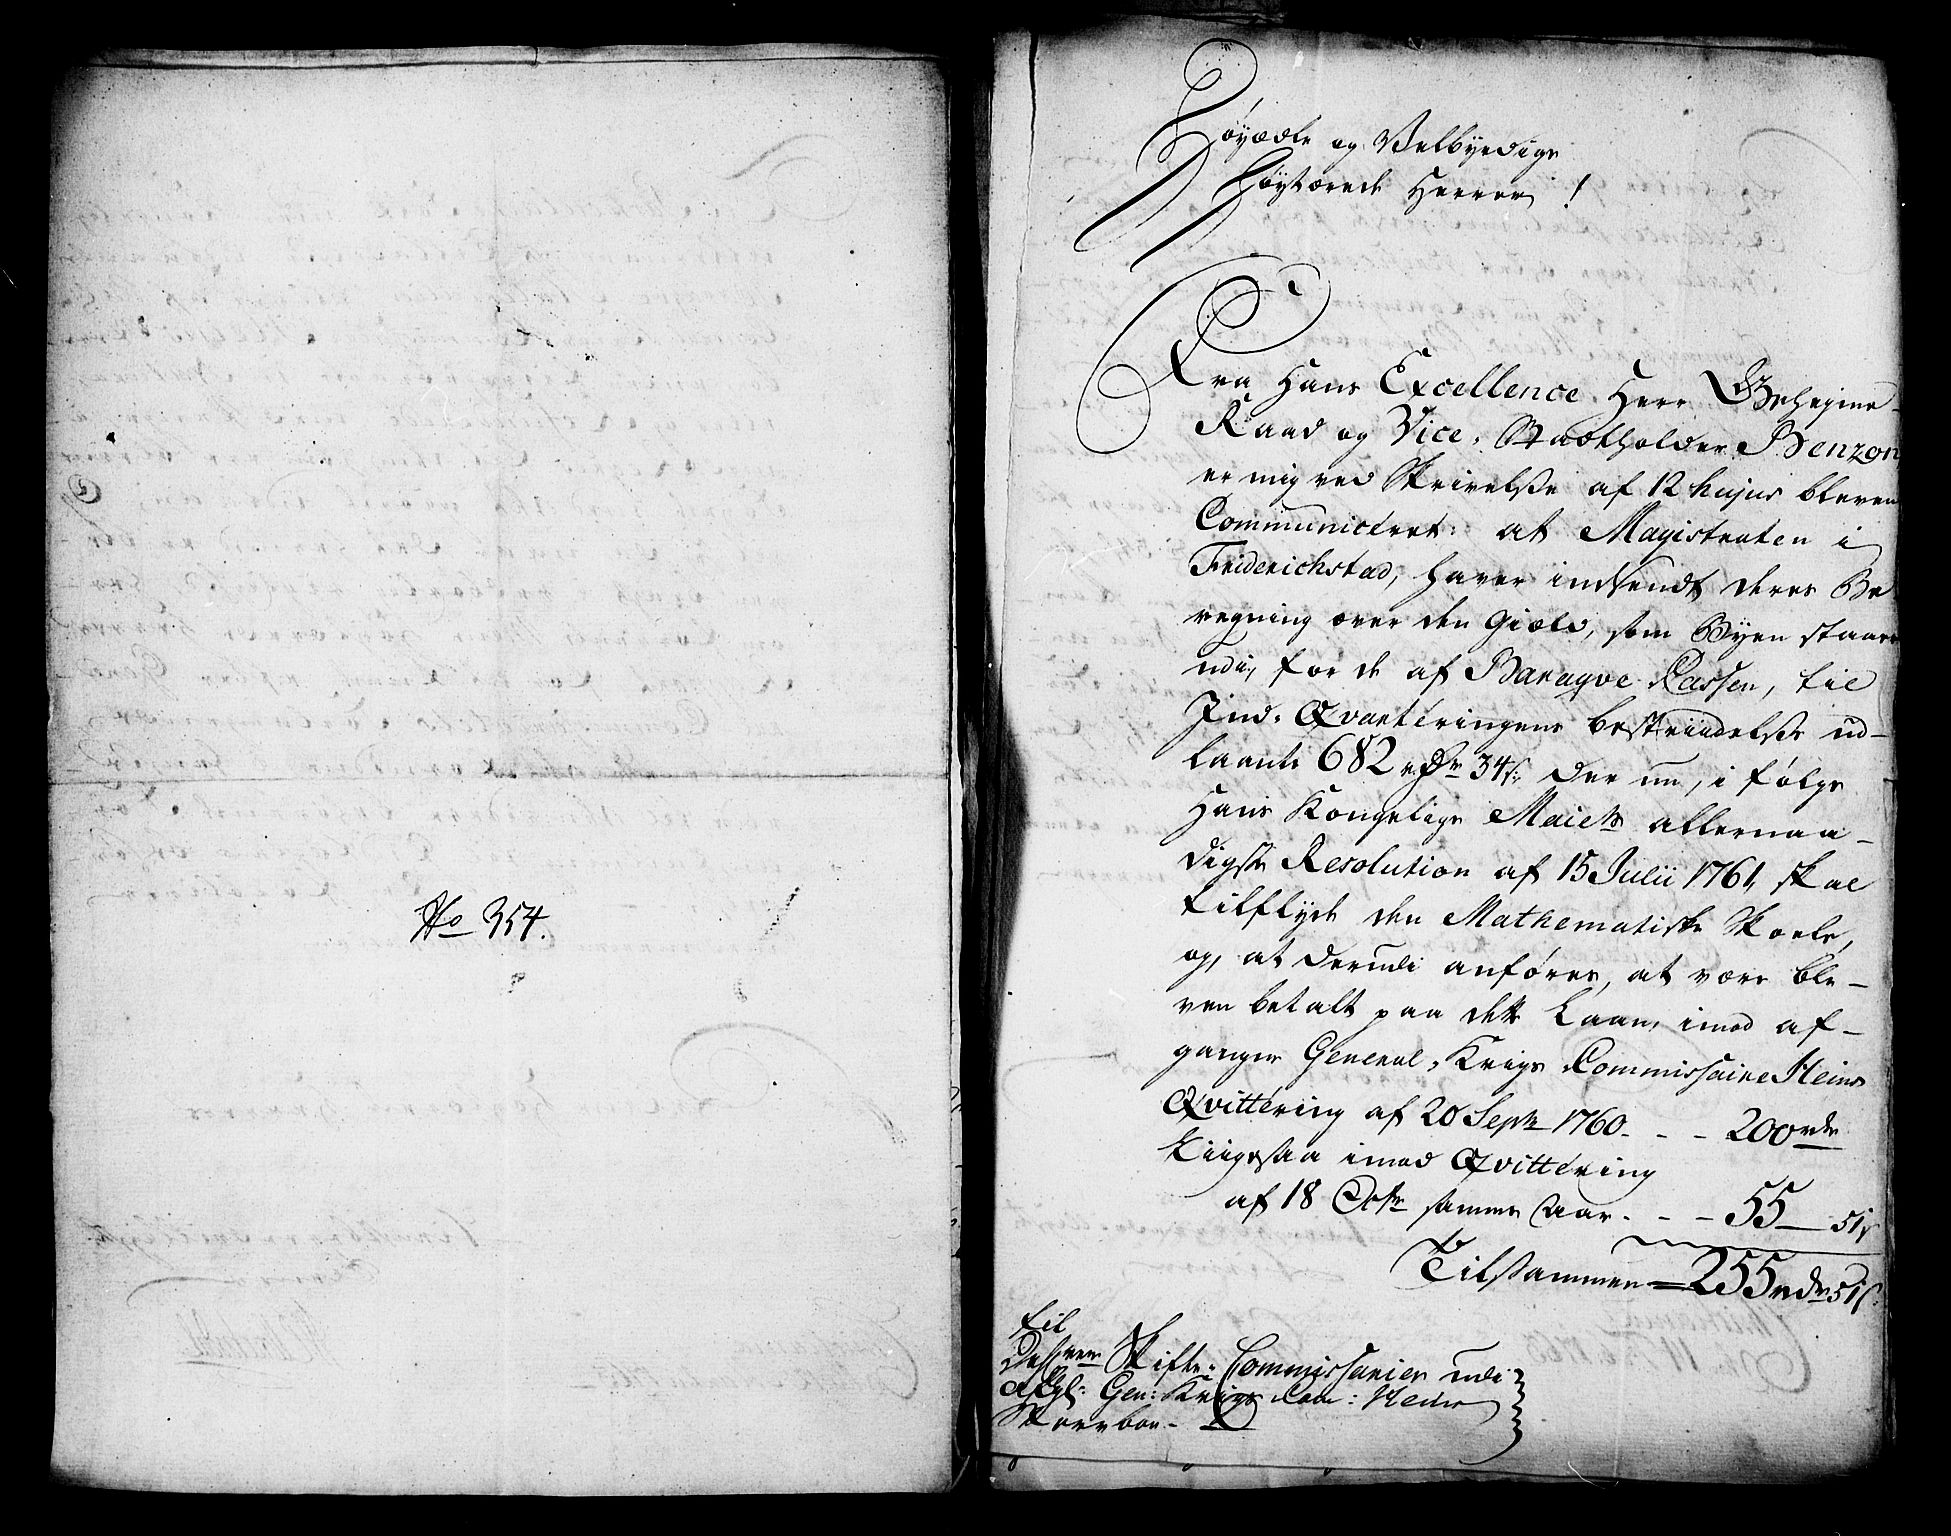 No 354.
Høyædle og Velbyrdige
Høystærede Herrer!
Fra Hans Excellence Herr Geheyme-
Raad og Vice-Stadtholder Benzon
er mig ved Skrivelse af 12 hujus bleven
Communiceret: at Magistraten i
Friderichstad, haver indsendt deres Be
regning over den Giæld, som Byen staaer
udi, for de af Baraqve Cassen, til
Ind-Qvarteringens bestriidelse ud-
laante 682 rdr 34 s: der nu, i følge
Hans Kongelige Maiets allernaa-
digste Resolution af 15 Julii 1761, skal
tilflyde den Mathematiske Skoele,
og, at derudi anføres, at være ble-
ven betalt paa dette Laan, imod af-
gangen General-Krigs Commissaire Heins
Qvittering af 20 Septr 1760. - - 200 rdr
Liigesaa imod Qvittering
af 18 Octr samme Aar. - - 55 - 51 s
Tilsammen = 255 rdr 51 s:
til
Skifte-Commissarier udi
afgl: Gen: Krigs Com: Heins
Stervboe.